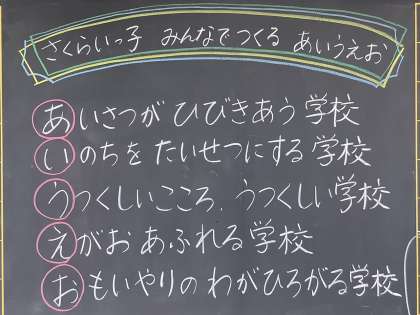 さくらいっ子 みんなでつくる あいうえお
あいさつが ひびきあう 学校
いのちを たいせつにする 学校
うつくしいこころ、うつくしい学校
えがお あふれる 学校
おもいやりの わがひろがる学校